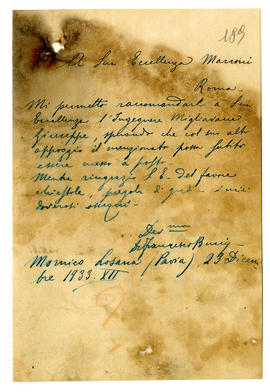 189
A Sua Eccellenza Marconi
Roma
Mi permetto raccomandarLe a Sua
Eccellenza l'Ingegnere Migliavacca
Giuseppe, sperando che col suo alto
appoggio il menzionato possa subito
essere messo a posto.
Mentre ringrazio S. E. del favore
chiestole, pregola di gradire i miei
doverosi ossequi.
Dev mo
Dr Francesco
Mornico Losana (Pavia), 23 Dicem
bre 1933. XII